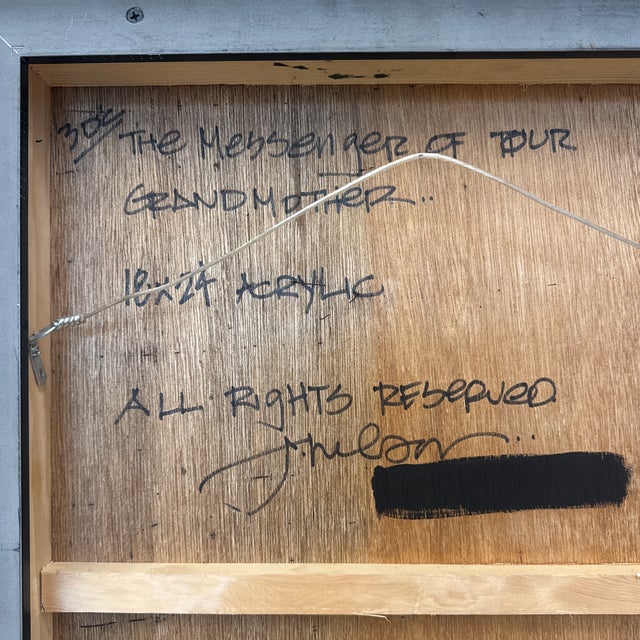 THE MESSENGER OF YOUR
GRANDMOTHER..
18x24 ACRYLIC
ALL RIGHTS RESERVED